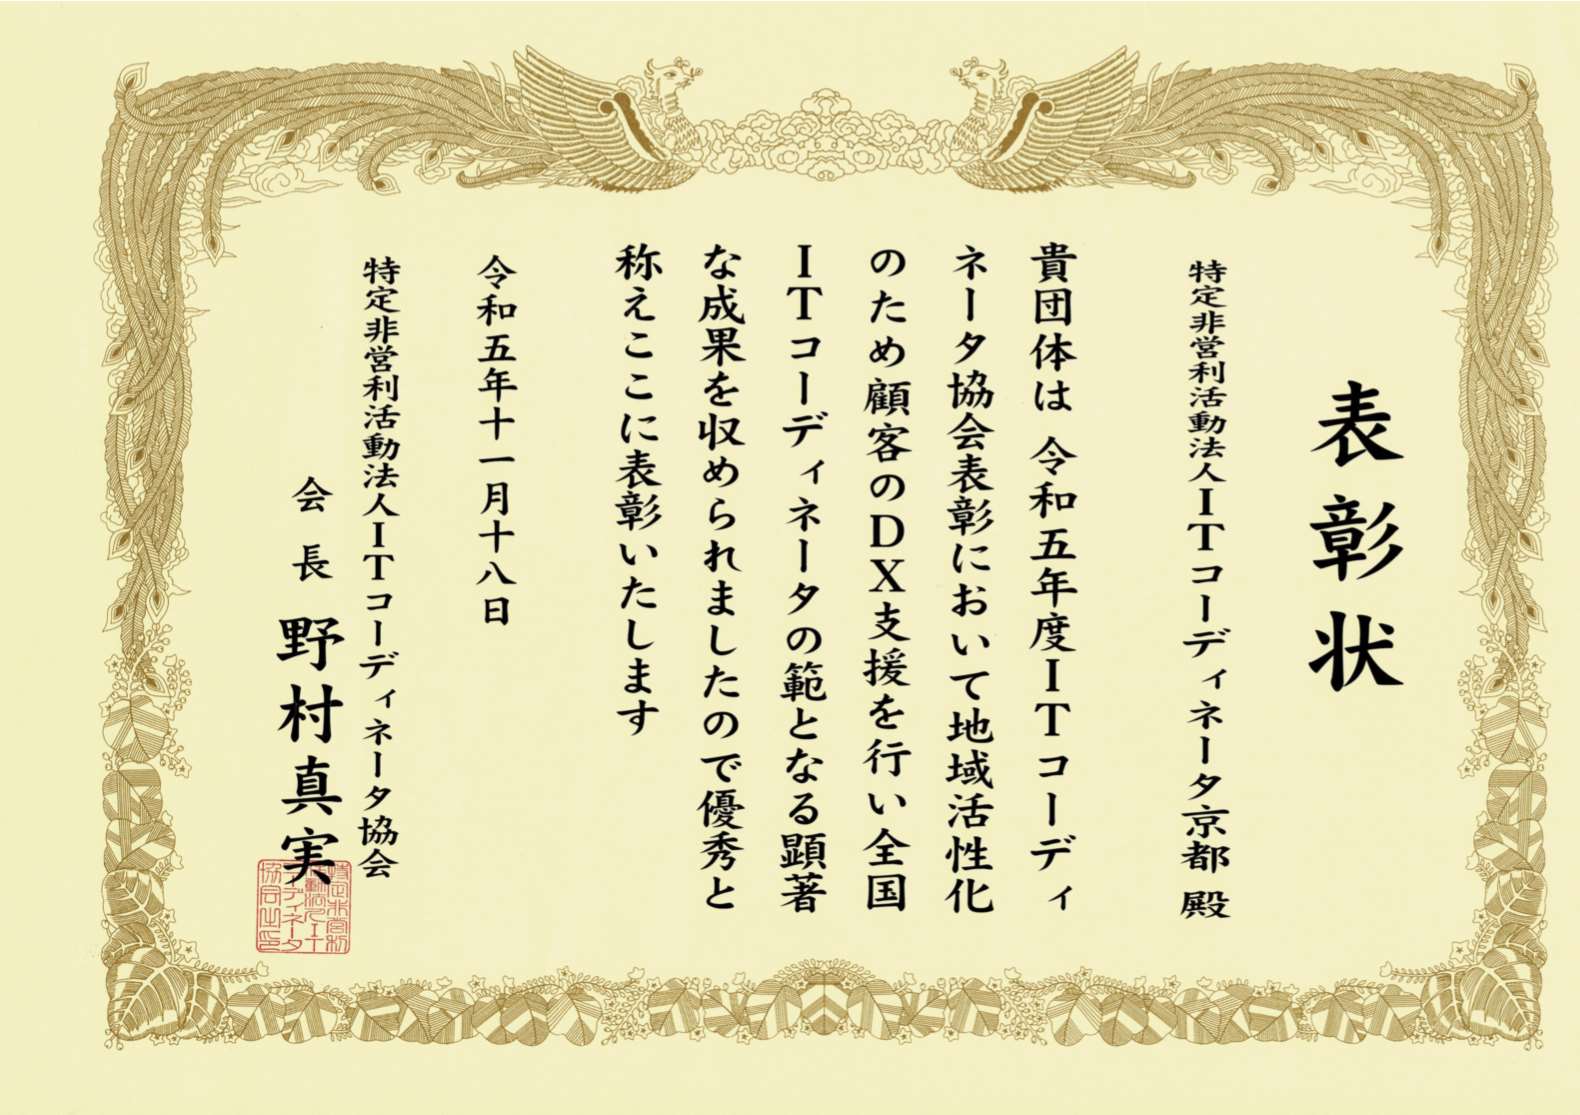 表彰状
特定非営利活動法人ITコーディネータ京都 殿
貴団体は 令和五年度ITコーディ
ネータ協会表彰において地域活性化
のため顧客のDX支援を行い全国
ITコーディネータの範となる顕著
な成果を収められましたので優秀と
称えここに表彰いたします
令和五年十一月十八日
特定非営利活動法人ITコーディネータ協会
会長 野村真実
特定非営利
活動法人IT
コーディネータ
協会之印